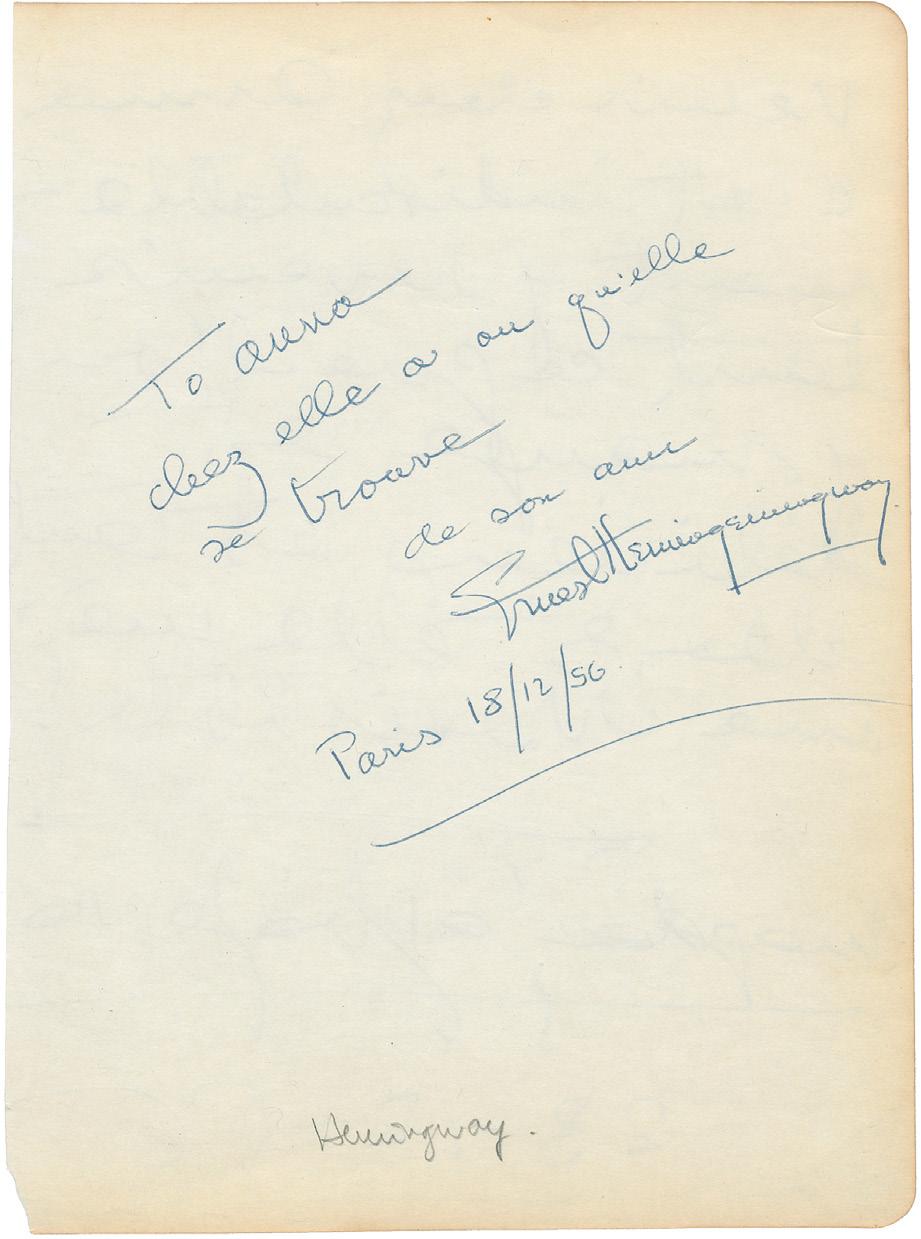 To anna
chez elle o ou qu'elle
se trouve
de son ami
Ernest Hemingway
Paris 18/12/56
Hemingway.